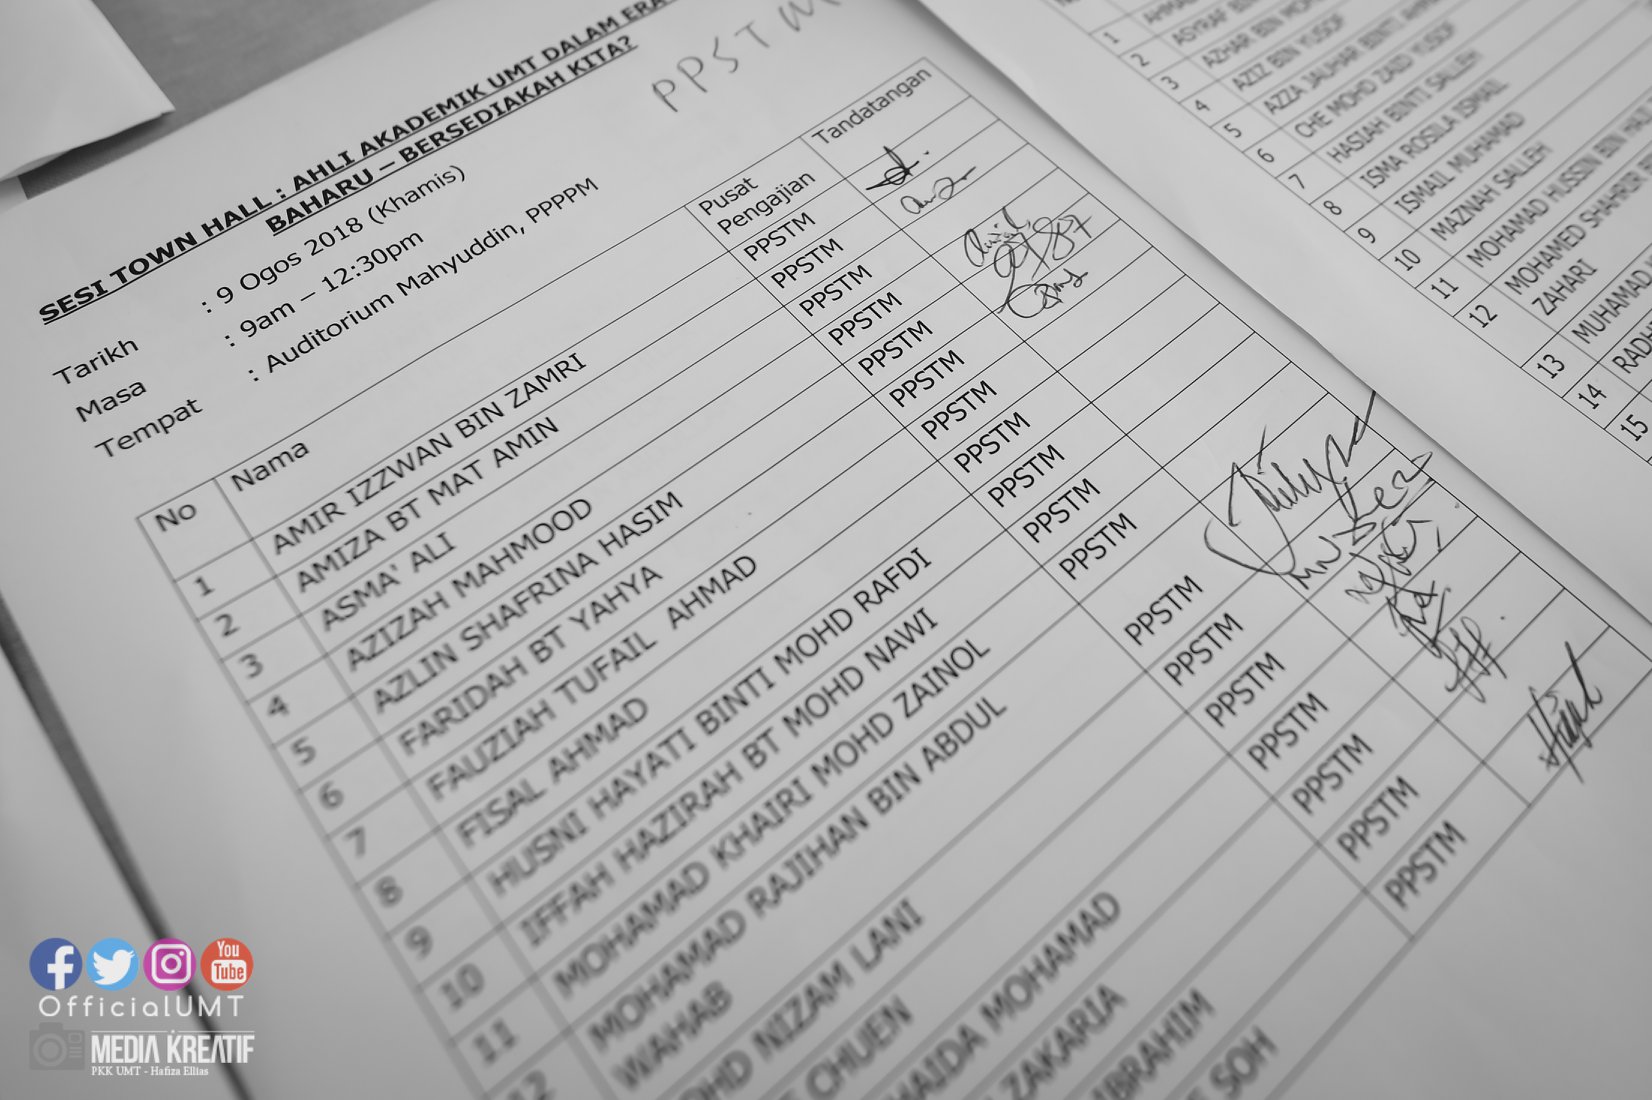 SESI TOWN HALL : AHLI AKADEMIK UMT DALAM ERA
BAHARU – BERSEDIAKAH KITA?
PPSTM
Tarikh : 9 Ogos 2018 (Khamis)
Masa : 9am – 12:30pm
Tempat : Auditorium Mahyuddin, PPPPM
No Nama Pusat Pengajian Tandatangan
1 AMIR IZZWAN BIN ZAMRI PPSTM
2 AMIZA BT MAT AMIN PPSTM
3 ASMA' ALI PPSTM
4 AZIZAH MAHMOOD PPSTM
5 AZLIN SHAFRINA HASIM PPSTM
6 FARIDAH BT YAHYA PPSTM
7 FAUZIAH TUFAIL AHMAD PPSTM
8 FISAL AHMAD PPSTM
9 HUSNI HAYATI BINTI MOHD RAFDI PPSTM
10 IFFAH HAZIRAH BT MOHD NAWI PPSTM
11 MOHAMAD KHAIRI MOHD ZAINOL PPSTM
12 MOHAMAD RAJIHAN BIN ABDUL WAHAB PPSTM
NIZAM LANI PPSTM
CHUEN PPSTM
MOHAMAD PPSTM
ZAKARIA PPSTM
IBRAHIM PPSTM
SOH PPSTM
1
2 ASYRAF BIN
3 AZHAR BIN
4 AZIZ BIN YUSOF
5 AZZA JAUHAR BINTI
6 CHE MOHD ZAID YUSOF
7 HASIAH BINTI SALLEH
8 ISMA ROSILA ISMAIL
9 ISMAIL MUHAMAD
10 MAZNAH SALLEH
11 MOHAMAD HUSSIN BIN
12 MOHAMED SHAHRIR
ZAHARI
13 MUHAMAD
14
15
You
Tube
OfficialUMT
MEDIA KREATIF
PKK UMT - Hafiza Ellias